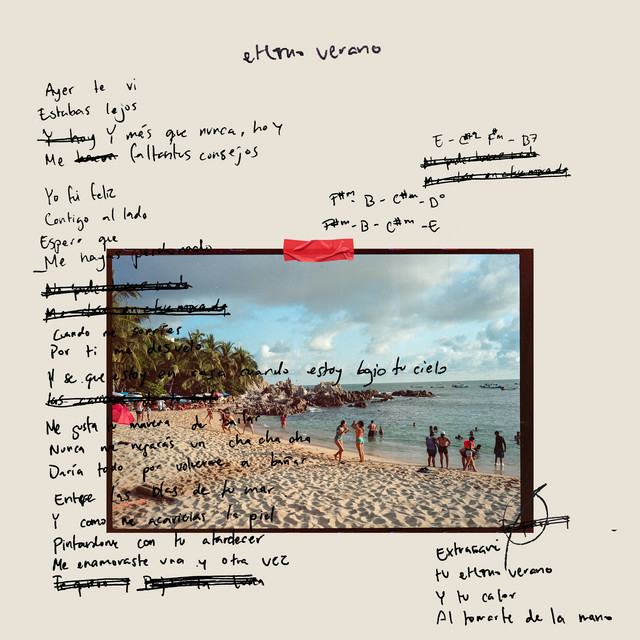 eterno verano
Ayer te vi
Estabas lejos
Y hoy Y más que nunca, hoy
Me faltantus consejos
E - C#m F#m - B7
F#m - B - C#m - D°
F#m - B - C#m - E
Yo fui feliz
Contigo al lado
Espero que
Me hayas perdonado
Cuando me sonríes
Por ti me desvelo
Y se que estoy en casa cuando estoy bajo tu cielo
Me gusta tu manera de bailar
Nunca me negarás un cha cha cha
Daría todo por volverme a bañar
Entre las olas de tu mar
Y como me acaricias la piel
Pintandome con tu atardecer
Me enamoraste una y otra vez
Te quiero y
Extrañaré
tu eterno verano
Y tu calor
Al tomarte de la mano